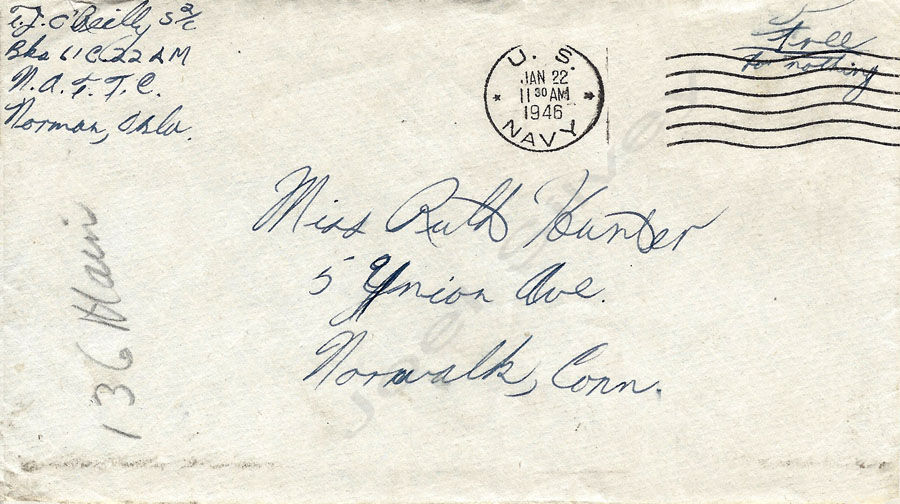 T.J. O'Reilly S 2/c
Bks 61 C-22 AM
N.A.T.T.C.
Norman, Okla.
U. S.
JAN 22
11 30 AM
1946
NAVY
Free
Miss Ruth Hunter
5 Union Ave.
Norwalk, Conn.
136 Main